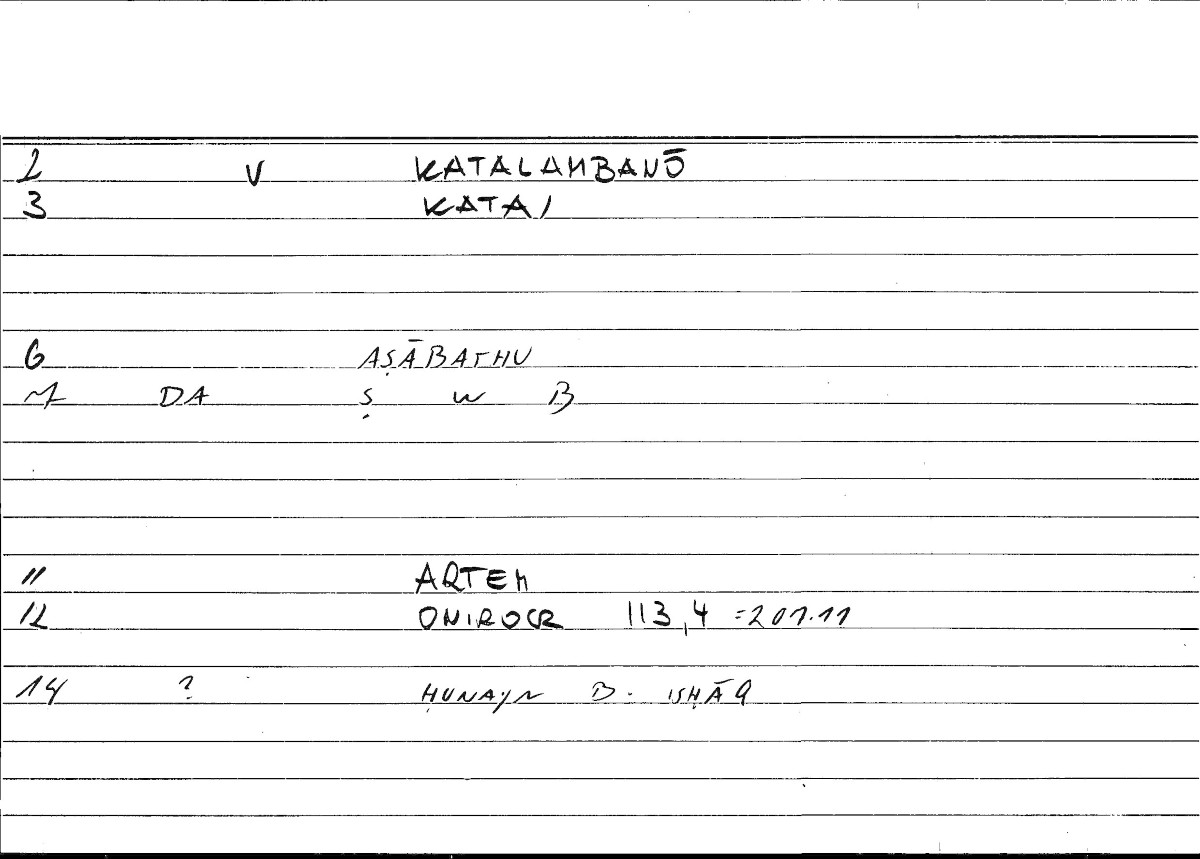 2 V KATALAMBANŌ
3 KATA/
6 AṢĀBATHU
7 DA Ṣ W B
11 ARTEM
12 ONIROCR 113,4 =201.11
14 ? ḤUNAYN B. ISḤĀQ